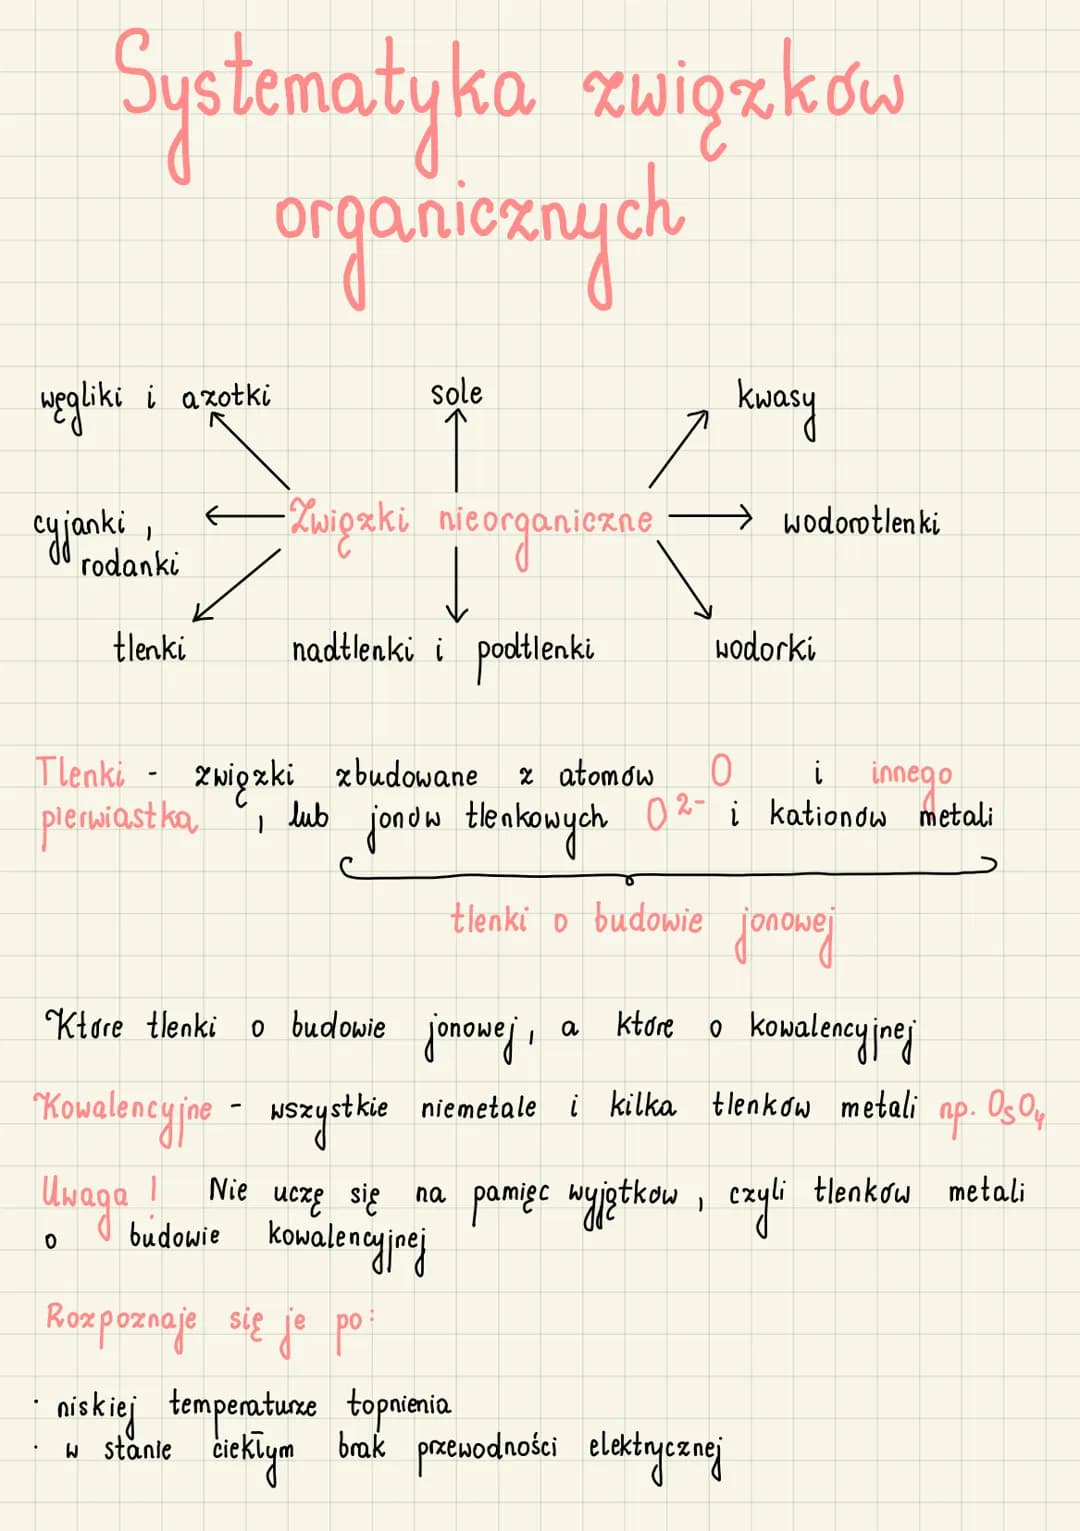 Systematyka związków
organicznych
węgliki i azotki
sole
kwasy
cyjanki,
rodanki
Związki nieorganiczne
wodorotlenki
tlenki
nadtlenki i podtlenki
wodorki
Tlenki - związki zbudowane z atomów O i innego
pierwiastka, lub jonów tlenkowych O²⁻ i kationów metali
tlenki o budowie jonowej
Które tlenki o budowie jonowej, a które o kowalencyjnej
Kowalencyjne - wszystkie niemetale i kilka tlenków metali np. OsO₄
Uwaga! Nie uczę się na pamięć wyjątków, czyli tlenków metali
o budowie kowalencyjnej
Rozpoznaje się je po:
· niskiej temperaturze topnienia
· w stanie ciekłym brak przewodności elektrycznej